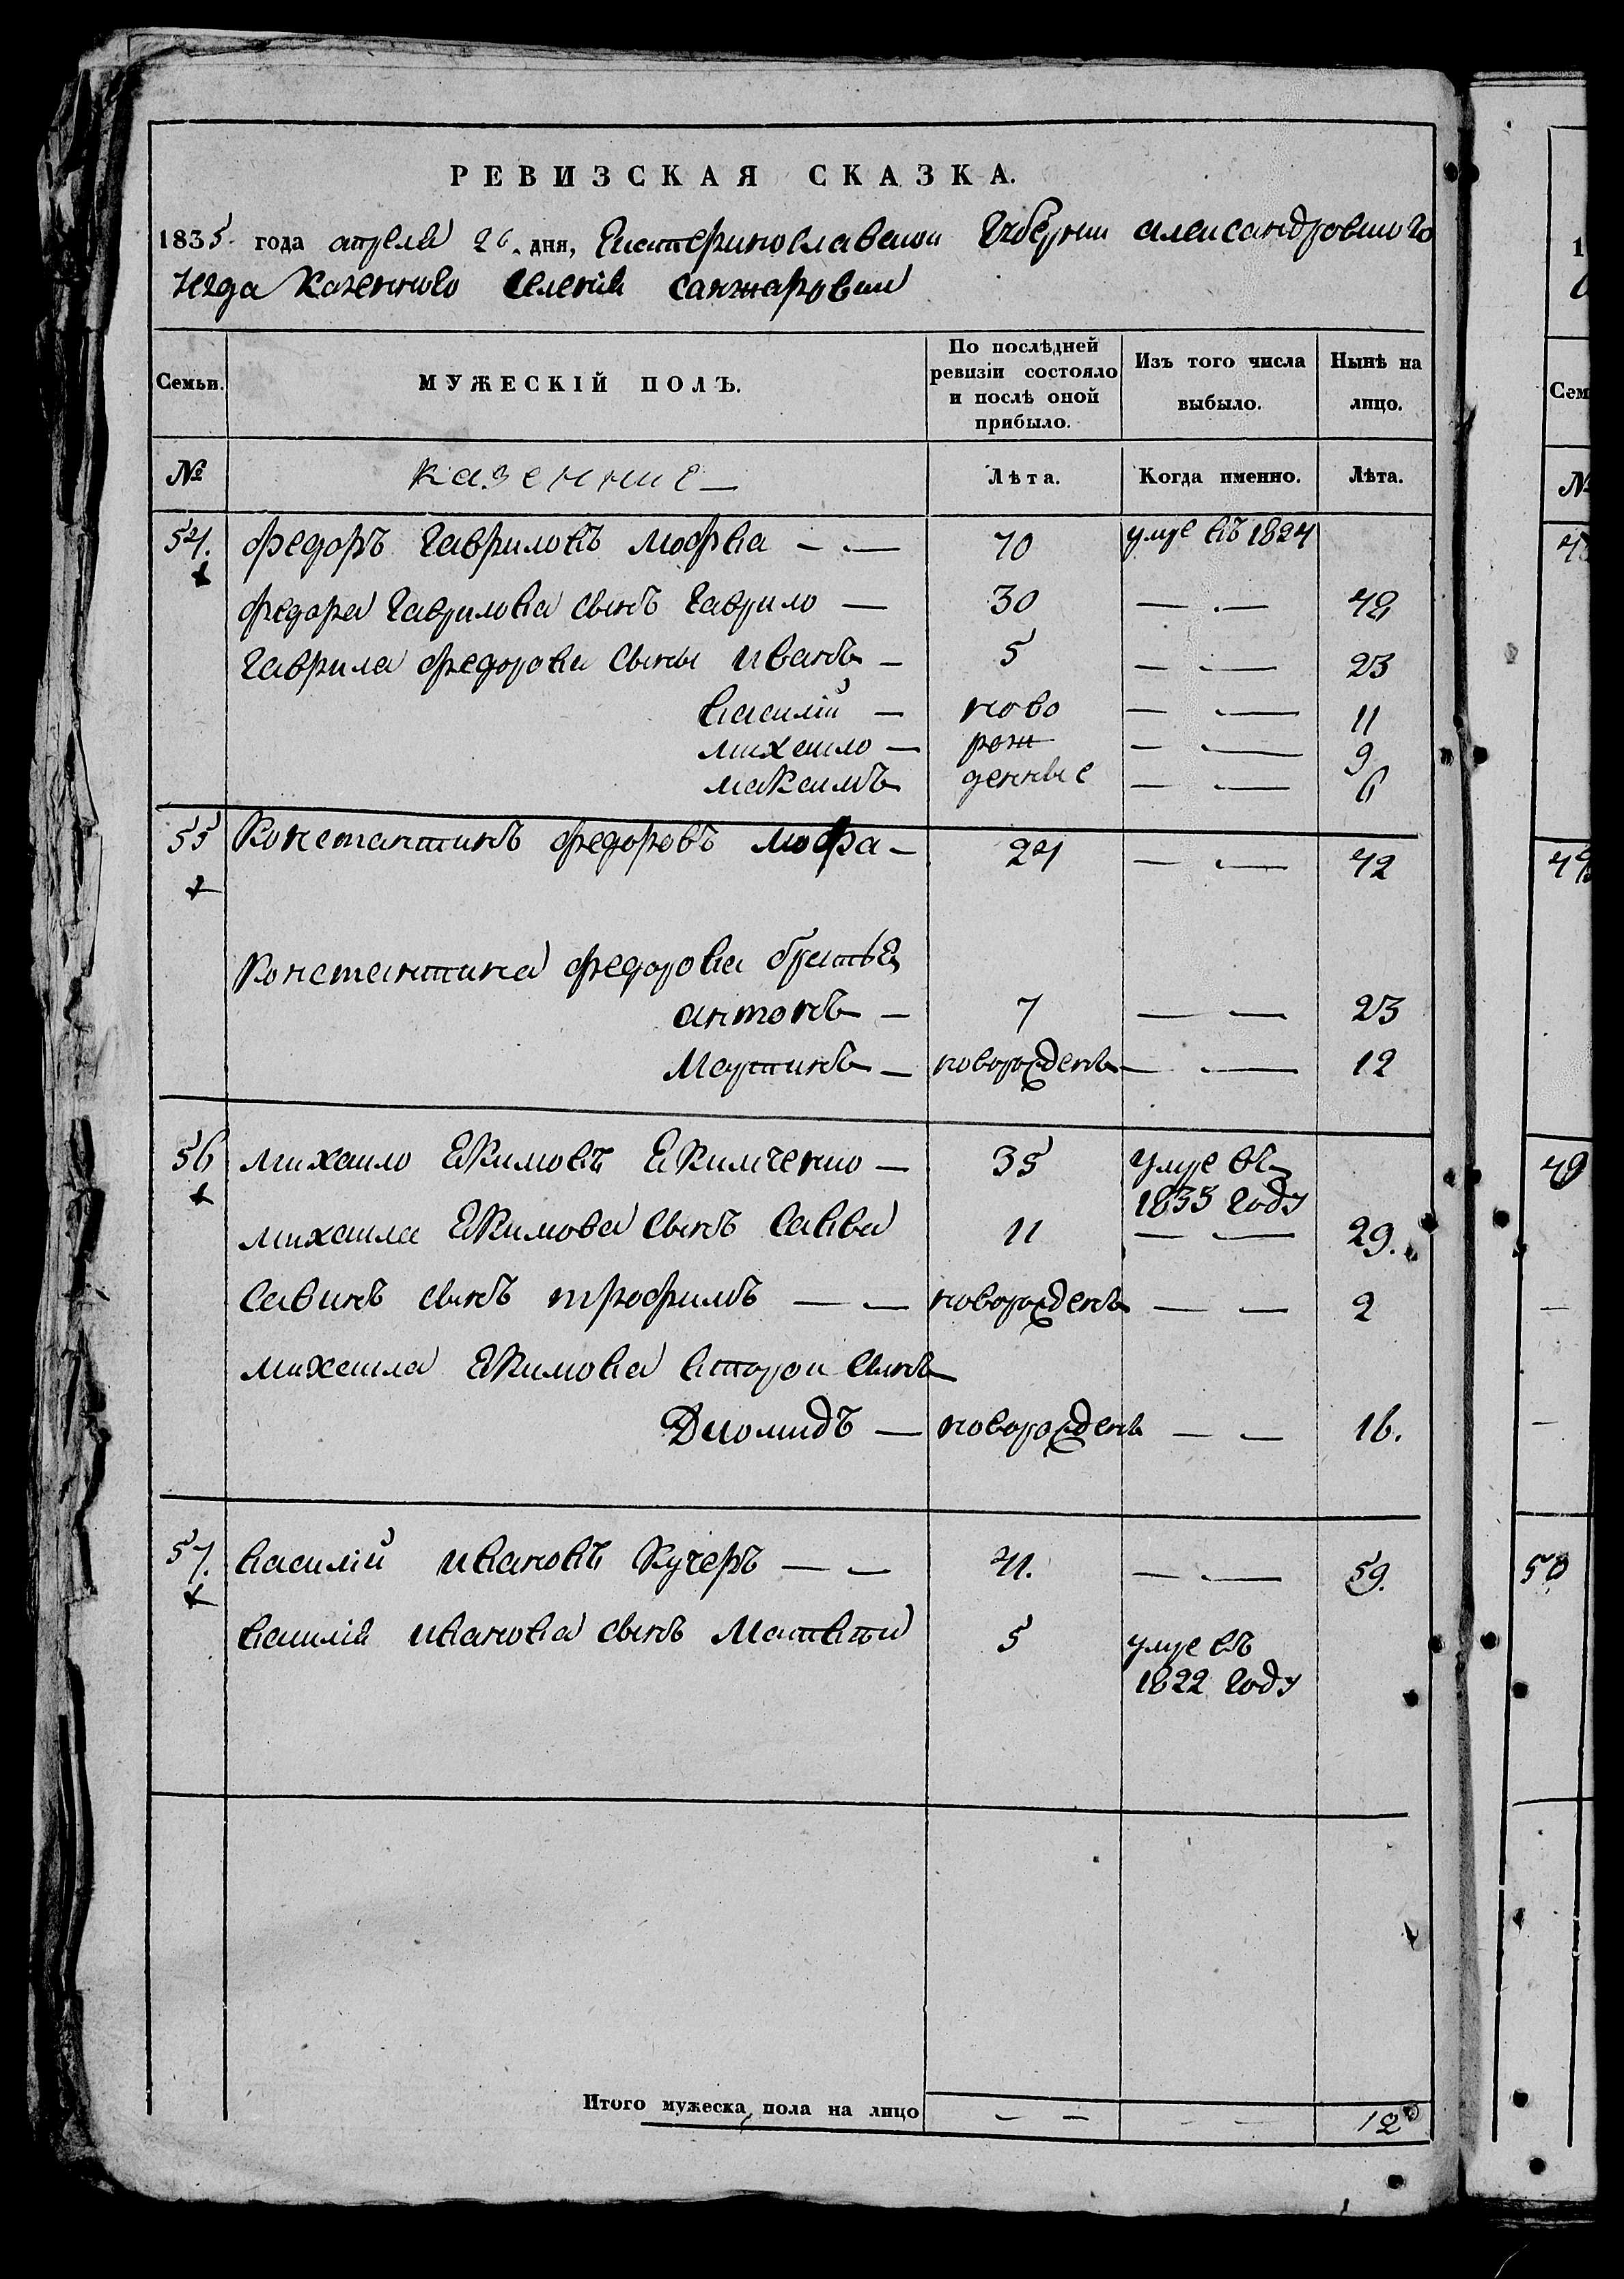 РЕВИЗСКАЯ СКАЗКА.
1835 года апреля 26 дня, Екатеринославской Губернии александровского
уезда Казенного селения санжаровки
Семьи. МУЖЕСКІЙ ПОЛЪ. По послѣдней ревизіи состояло и послѣ оной прибыло. Изъ того числа выбыло. Нынѣ на лицо.
№ казенние Лѣта. Когда именно. Лѣта.
54. федоръ Гавриловъ 70 умре въ 1824
федора Гаврилова сынъ Гаврило 30 — — 48
Гаврила федорова сыны иванъ 5 — — 23
василій ново — — 11
михаило рож — — 9
максимъ денные — — 6
55 Константинъ федоровъ 24 — — 42
Константина федорова братья
антонъ 7 — — 23
Мартинъ новорожденъ — — 12
56 михаило Екимовъ Екимченко 35 умре въ
1835 году
михаила Екимова сынъ Савва 11 — — 29.
Савинъ сынъ трофимъ — — новорожденъ — — 2
михаила Екимова второи сынъ
Диомидъ — новорожденъ — — 16.
57. василій ивановъ Кучеръ — — 41. — — 59.
василія иванова сынъ Матвѣй 5 умре въ
1822 году
Итого мужеска пола на лицо — — — — 12
1
Сем
№
49
50